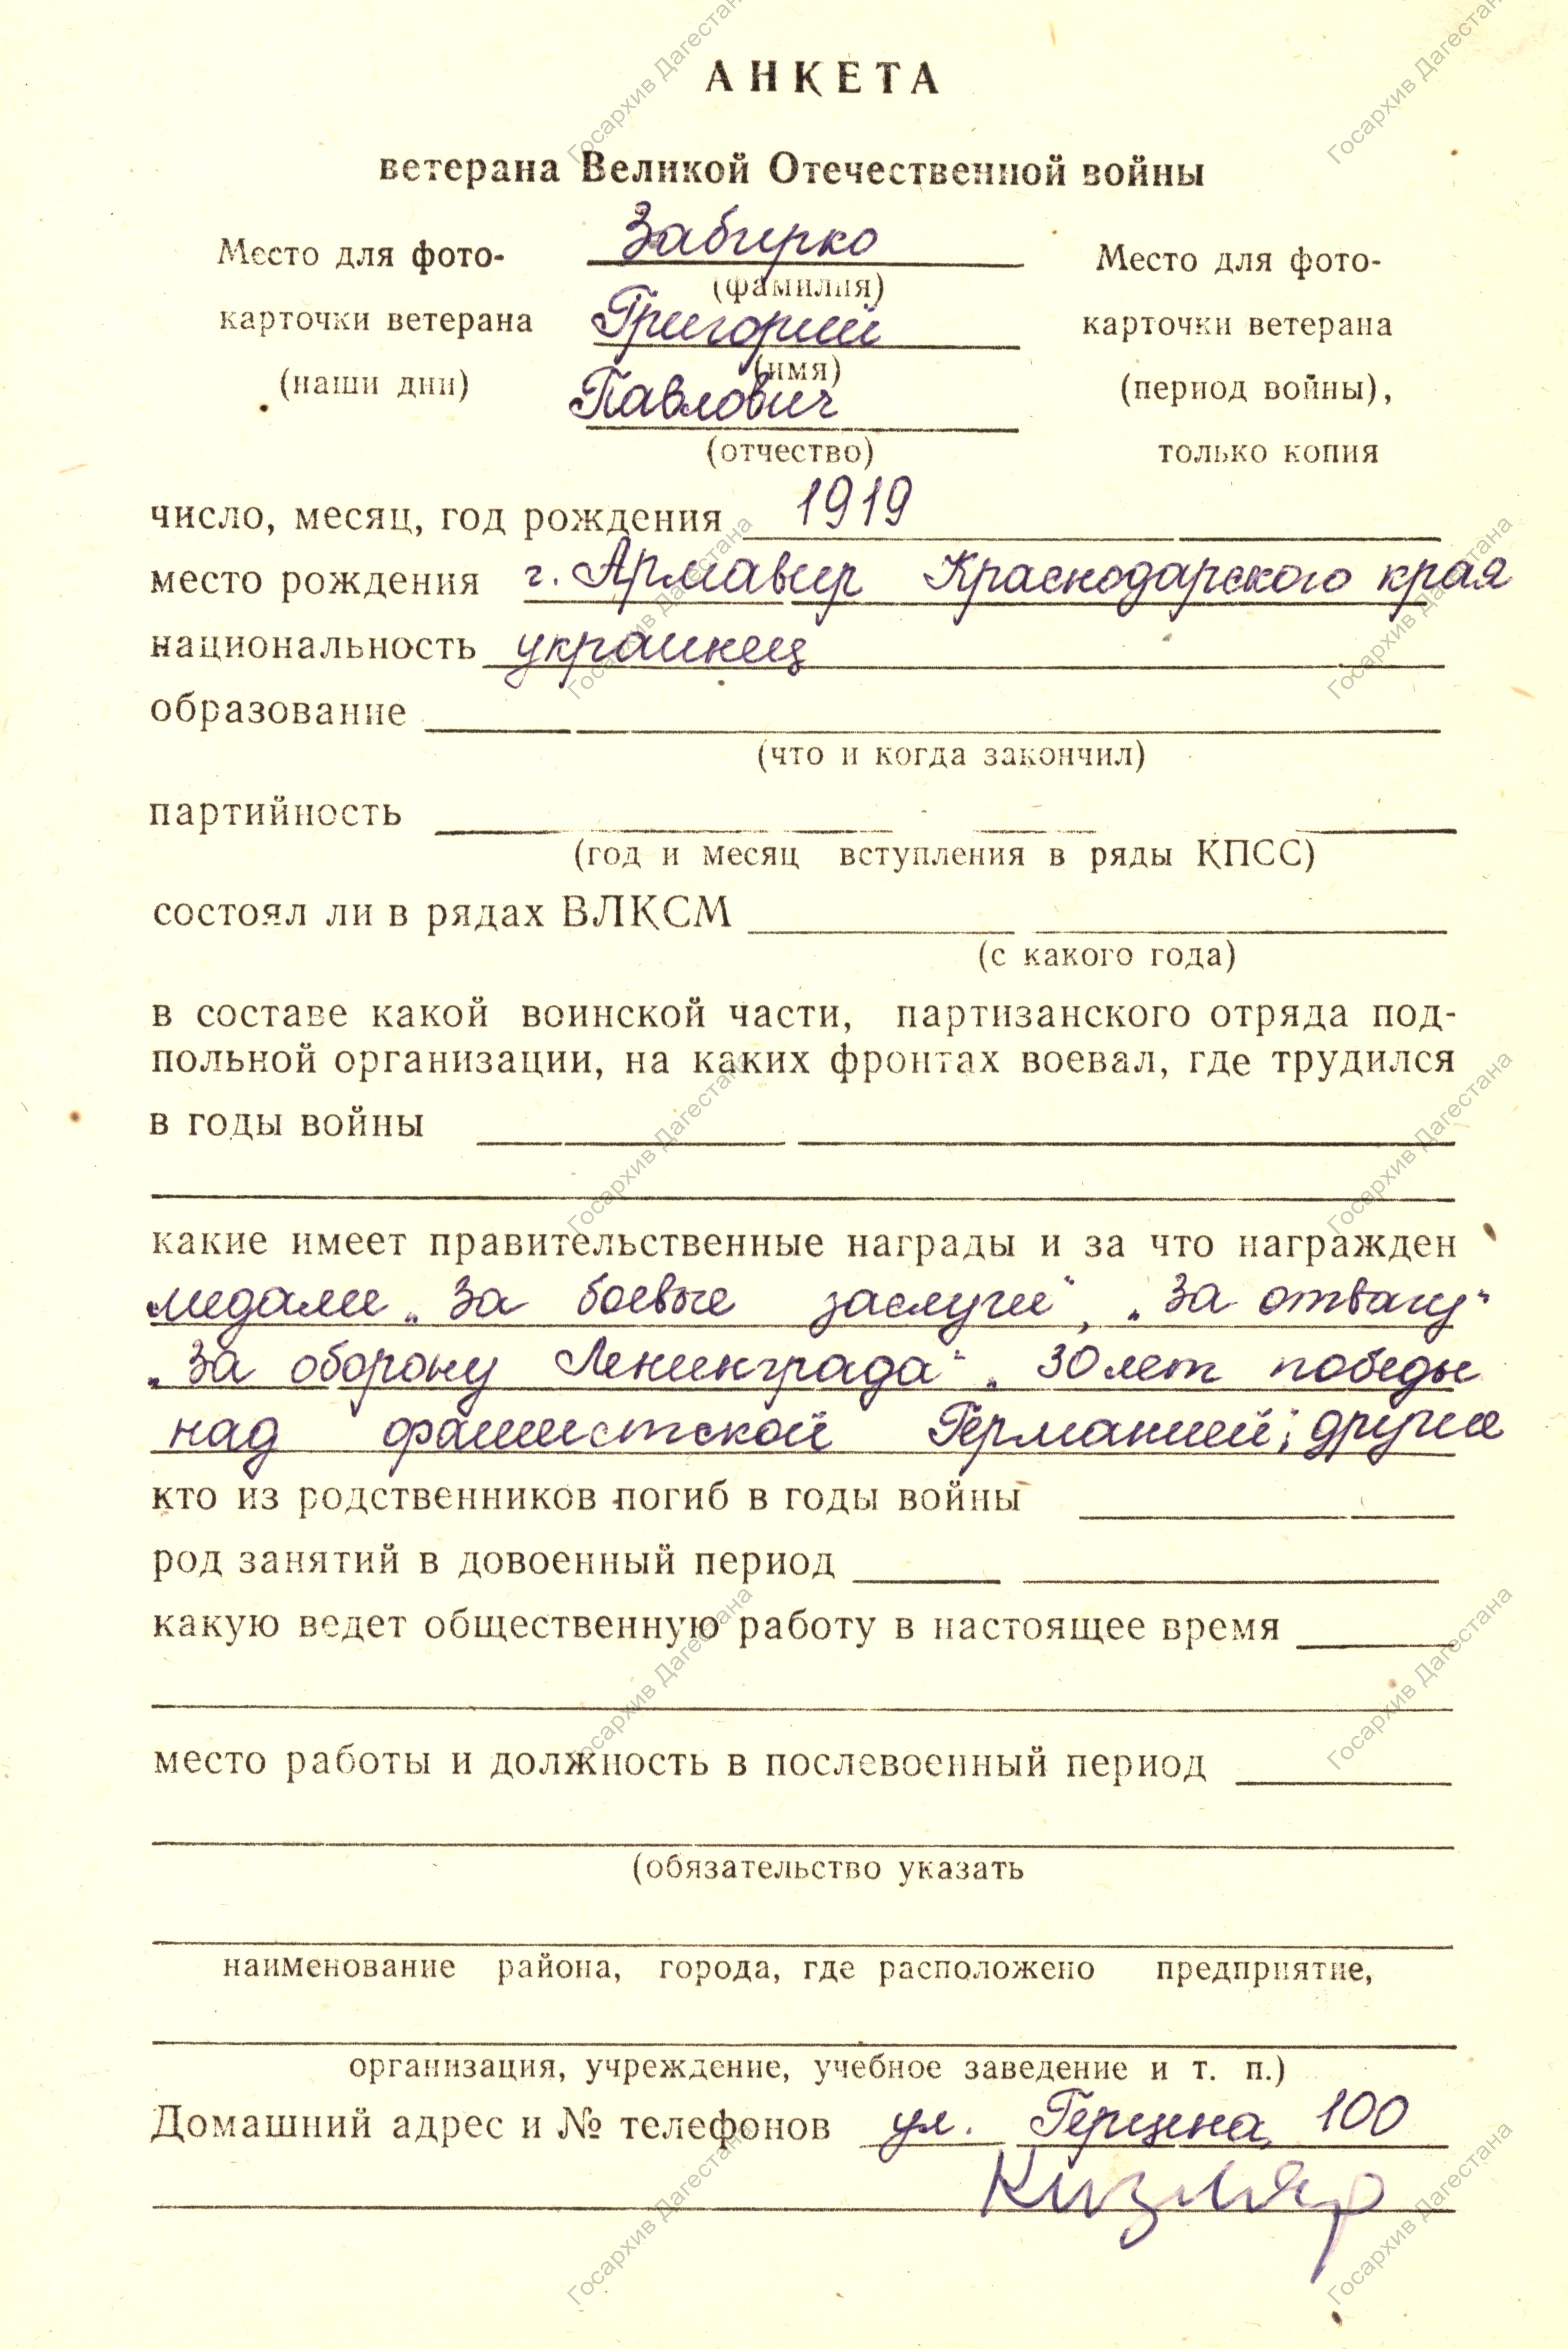 АНКЕТА
ветерана Великой Отечественной войны
Место для фото-
карточки ветерана
(наши дни)
Забирко
(фамилия)
Григорий
(имя)
Павлович
(отчество)
Место для фото-
карточки ветерана
(период войны),
только копия
число, месяц, год рождения 1919
место рождения г. Армавир Краснодарского края
национальность украинец
образование
(что и когда закончил)
партийность
(год и месяц вступления в ряды КПСС)
состоял ли в рядах ВЛКСМ
(с какого года)
в составе какой воинской части, партизанского отряда под-
польной организации, на каких фронтах воевал, где трудился
в годы войны
какие имеет правительственные награды и за что награжден
медали „За боевые заслуги“, „За отвагу“
„За оборону Ленинграда“ „30 лет победы
над фашистской Германией“; другие
кто из родственников погиб в годы войны
род занятий в довоенный период
какую ведет общественную работу в настоящее время
место работы и должность в послевоенный период
(обязательство указать
наименование района, города, где расположено предприятие,
организация, учреждение, учебное заведение и т. п.)
Домашний адрес и № телефонов ул. Герцена, 100
Кизляр
Госархив Дагестана
Госархив Дагестана
Госархив Дагестана
Госархив Дагестана
Госархив Дагестана
Госархив Дагестана
Госархив Дагестана
Госархив Дагестана
Госархив Дагестана
Госархив Дагестана